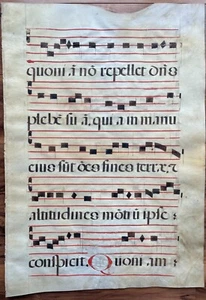 quoni ā nō repellet dn̄s
plebē su ā, qui a in manu
eius sūt oēs fines terrae, ⁊
altitudines mōtiū ipse
conspicit. Quoni am